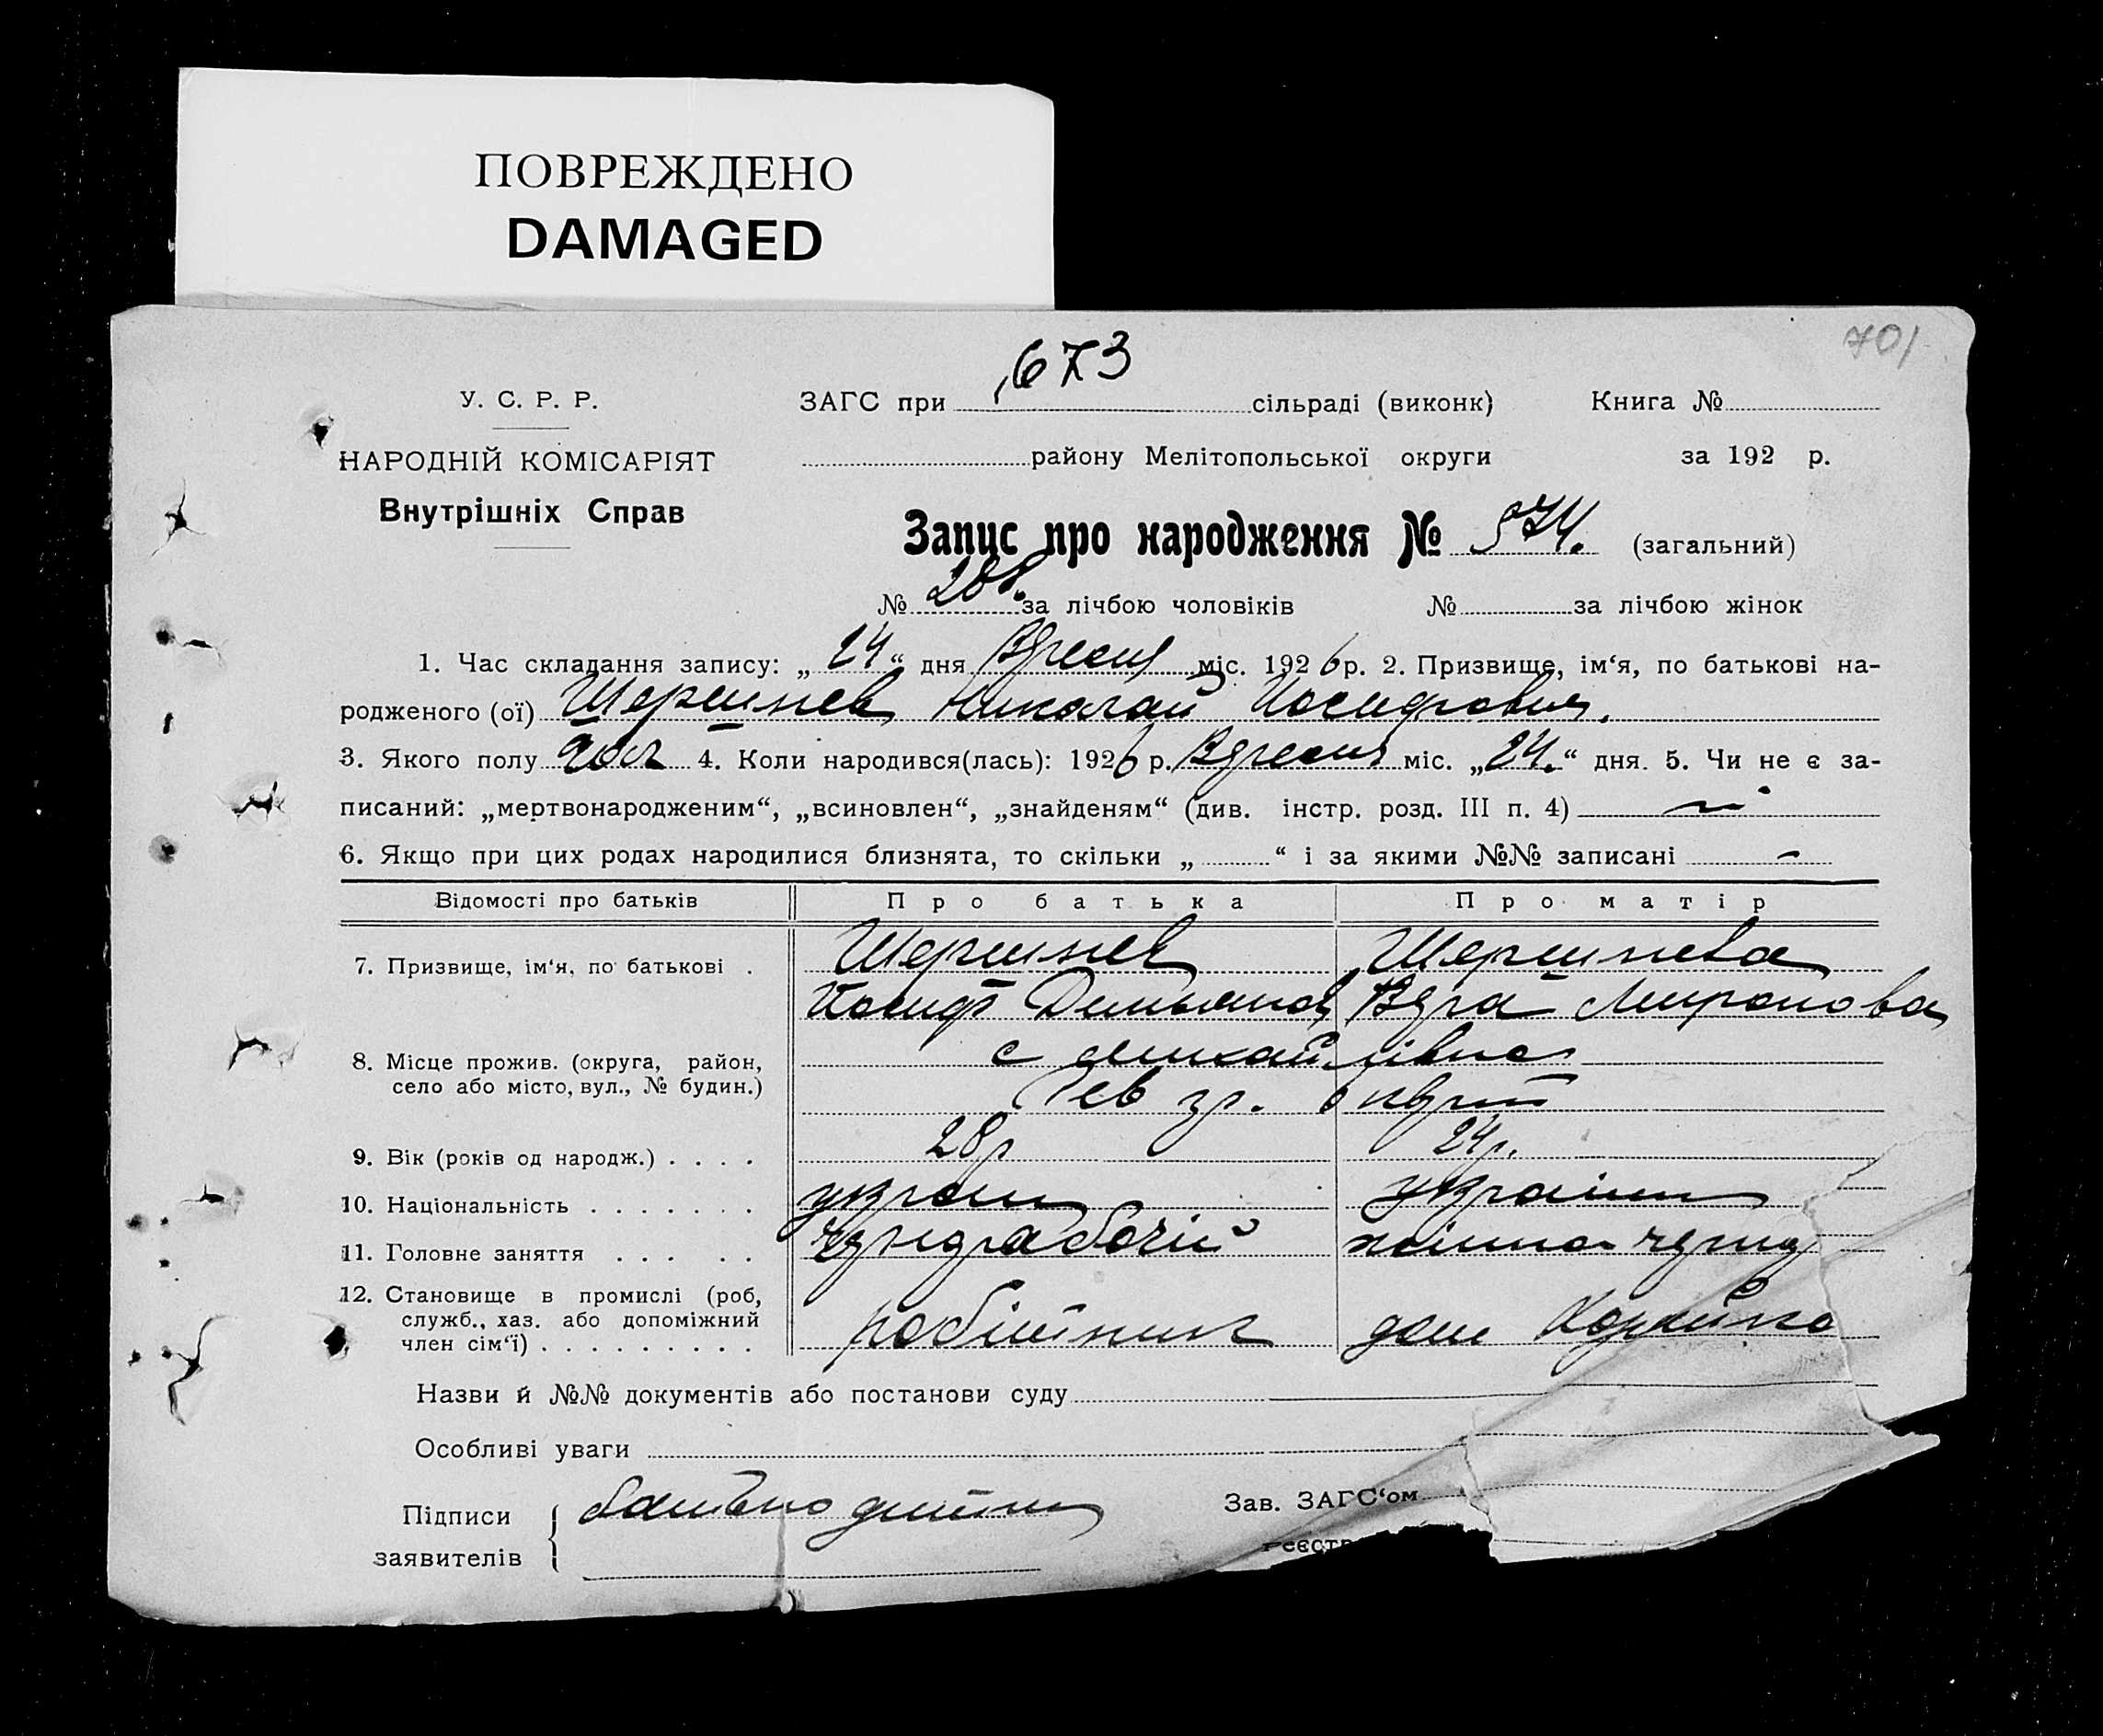 ПОВРЕЖДЕНО
DAMAGED
701
673
У. С. Р. Р.
ЗАГС при сільраді (виконк) Книга №
НАРОДНІЙ КОМІСАРІЯТ
району Мелітопольської округи за 192 р.
Внутрішніх Справ
Запис про народження № 574. (загальний)
№ 288. за лічбою чоловіків № за лічбою жінок
1. Час складання запису: „24“ дня Вересня міс. 1926 р. 2. Призвище, ім‘я, по батькові на-
родженого (ої) Шершнев Николай Иосифович.
3. Якого полу чол 4. Коли народився(лась): 1926 р. Вересня міс. „24.“ дня. 5. Чи не є за-
писаний: „мертвонародженим“, „всиновлен“, „знайденям“ (див. інстр. розд. III п. 4)
6. Якщо при цих родах народилися близнята, то скільки „ “ і за якими №№ записані -
Відомості про батьків Про батька Про матір
7. Призвище, ім‘я, по батькові . Шершнев Шершнева
Иосиф Демьянов Вера Миронова
8. Місце прожив. (округа, район,
село або місто, вул., № будин.)
9. Вік (років од народж.) . . . . 28р 24р.
10. Національність . . . . . . . украин україн
11. Головне заняття . . . . .
12. Становище в промислі (роб,
служб., хаз. або допоміжний
член сім‘ї) . . . . . . . . . робітник дом
Назви й №№ документів або постанови суду
Особливі уваги
Підписи
заявителів
батько дитини
Зав. ЗАГС‘ом